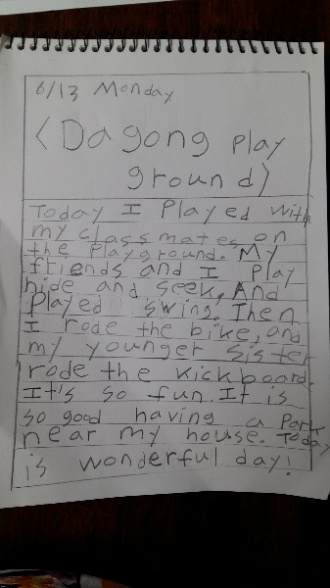 6/13 Monday
<Dagong play
ground>
Today I Played with
my classmates on
the Playground. My
friends and I Play
hide and seek, And
Played swing. Then
I rode the bike, and
my younger sister
rode the kickboard.
It's so fun. It is
so good having a Park
near my house. Today
is wonderful day!